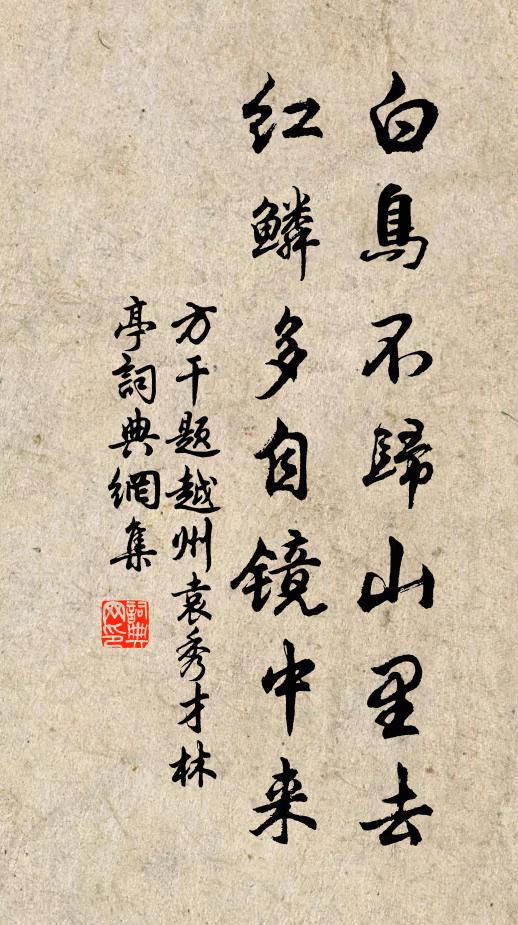 白鳥不歸山里去
紅鱗多自鏡中来
方干题越州袁秀才林
亭詞典網集
詞典
网印